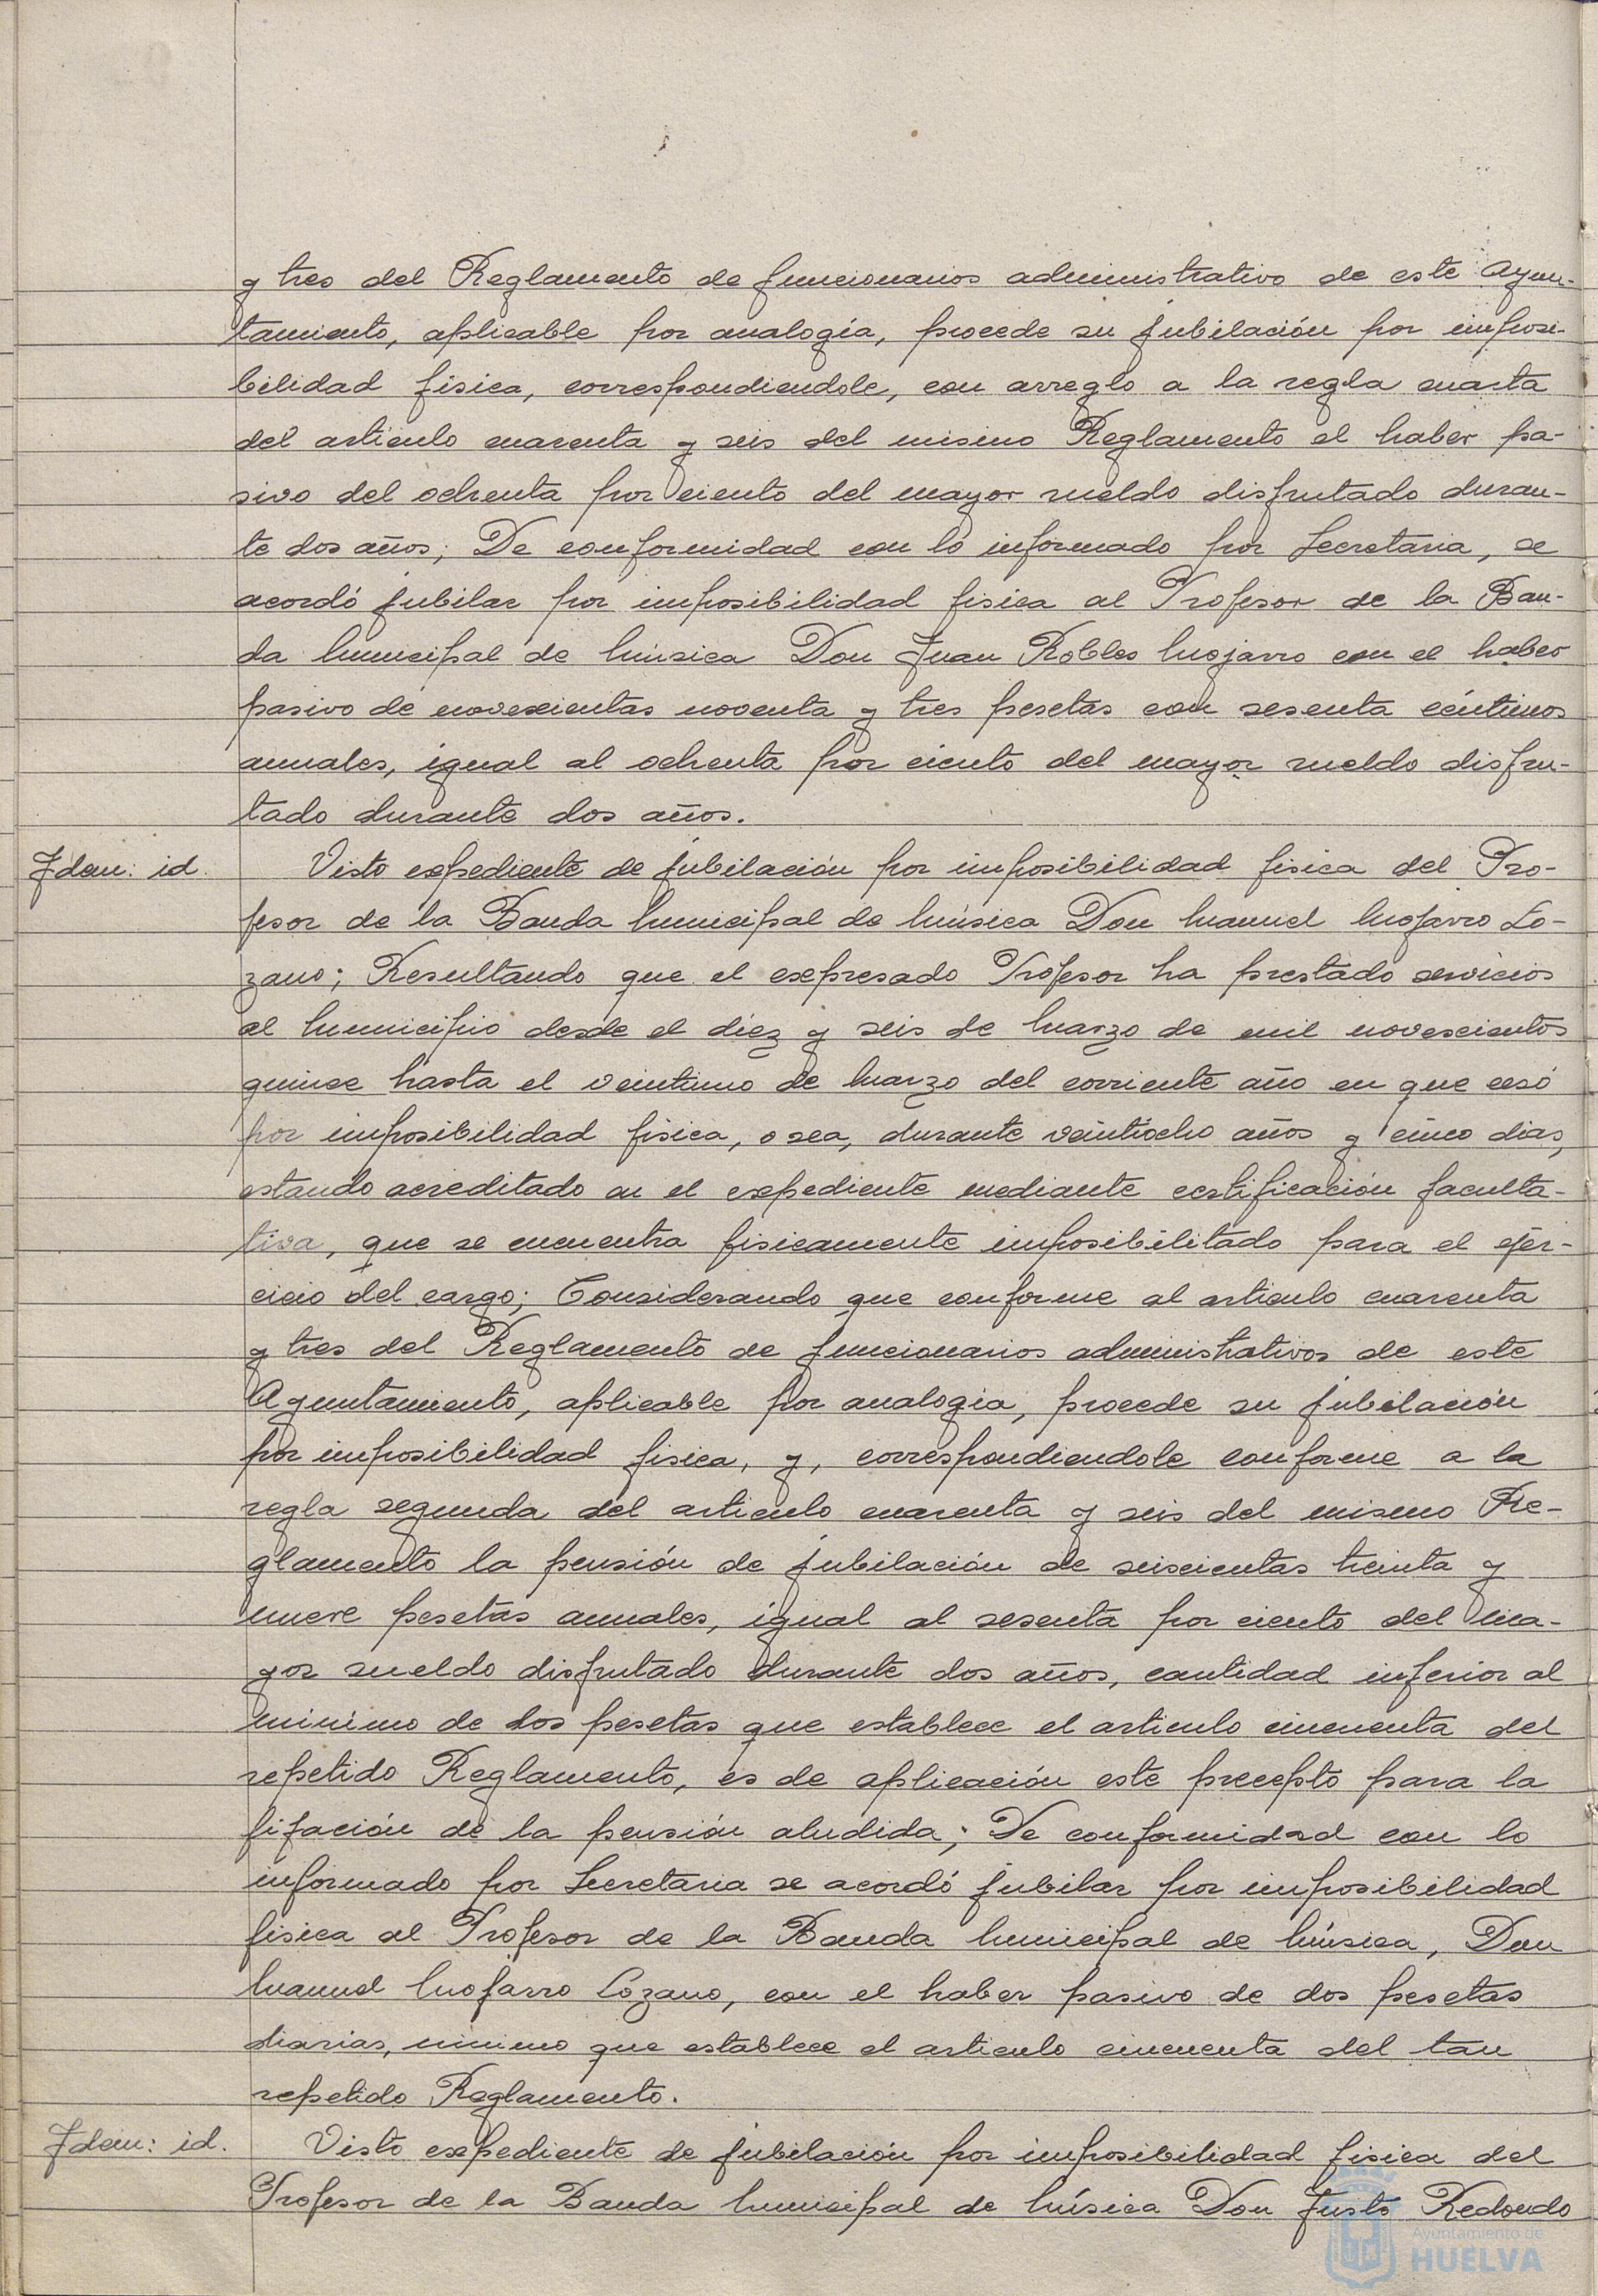 y tres del Reglamento de funcionarios administrativo de este Ayun-
tamiento, aplicable por analogía, procede su jubilación por imposi-
bilidad física, correspondiendole, con arreglo a la regla cuarta
del articulo cuarenta y seis del mismo Reglamento el haber pa-
sivo del ochenta por ciento del mayor sueldo disfrutado duran-
te dos años; De conformidad con lo informado por Secretaria, se
acordó jubilar por imposibilidad fisica al Profesor de la Ban-
da Municipal de Música Don Juan Robles Mojarro con el haber
pasivo de novescientas noventa y tres pesetas con sesenta céntimos
anuales, igual al ochenta por ciento del mayor sueldo disfru-
tado durante dos años.
Idem: id.
Visto expediente de jubilación por imposibilidad fisica del Pro-
fesor de la Banda Municipal de Música Don Manuel Mojarro Lo-
zano; Resultando que el expresado Profesor ha prestado servicios
al Municipio desde el diez y seis de Marzo de mil novescientos
quince hasta el veintiuno de Marzo del corriente año en que cesó
por imposibilidad física, o sea, durante veintiocho años y cinco dias,
estando acreditado en el expediente mediante certificación faculta-
tiva, que se encuentra fisicamente imposibilitado para el ejer-
cicio del cargo; Considerando que conforme al articulo cuarenta
y tres del Reglamento de funcionarios administrativos de este
Ayuntamiento, aplicable por analogia, procede su jubilación
por imposibilidad fisica, y, correspondiendole conforme a la
regla segunda del articulo cuarenta y seis del mismo Re-
glamento la pensión de jubilación de seiscientas treinta y
nueve pesetas anuales, igual al sesenta por ciento del ma-
yor sueldo disfrutado durante dos años, cantidad inferior al
minimo de dos pesetas que establece el articulo cincuenta del
repetido Reglamento, es de aplicación este precepto para la
fijación de la pensión aludida; De conformidad con lo
informado por Secretaria se acordó jubilar por imposibilidad
fisica al Profesor de la Banda Municipal de Música, Don
Manuel Mojarro Lozano, con el haber pasivo de dos pesetas
diarias, minimo que establece el articulo cincuenta del tan
repetido Reglamento.
Idem: id.
Visto expediente de jubilación por imposibilidad fisica del
Profesor de la Banda Municipal de Música Don Justo Redondo
Ayuntamiento de
HUELVA